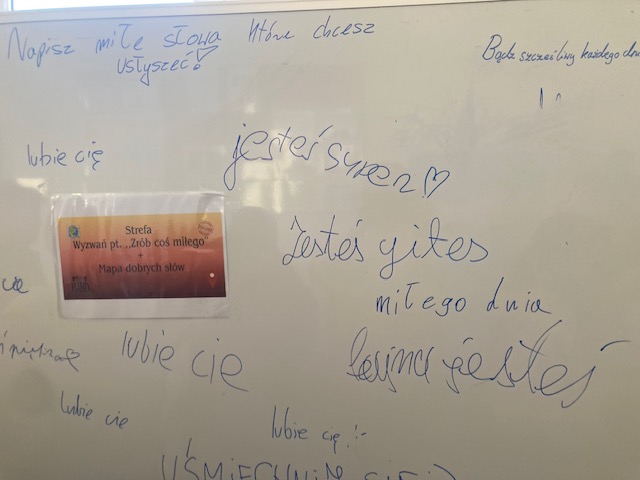 Napisz miłe słowa które chcesz
usłyszeć!
Bądź szczęśliwy każdego dnia
lubie cię
jesteś super
Strefa
Wyzwań pt. ,,Zrób coś miłego"
+
Mapa dobrych słów
Jesteś gites
miłego dnia
cię
lubie cię
fajna jesteś
lubie cie
lubie cię :-
UŚMIECHNIJ SIĘ :)